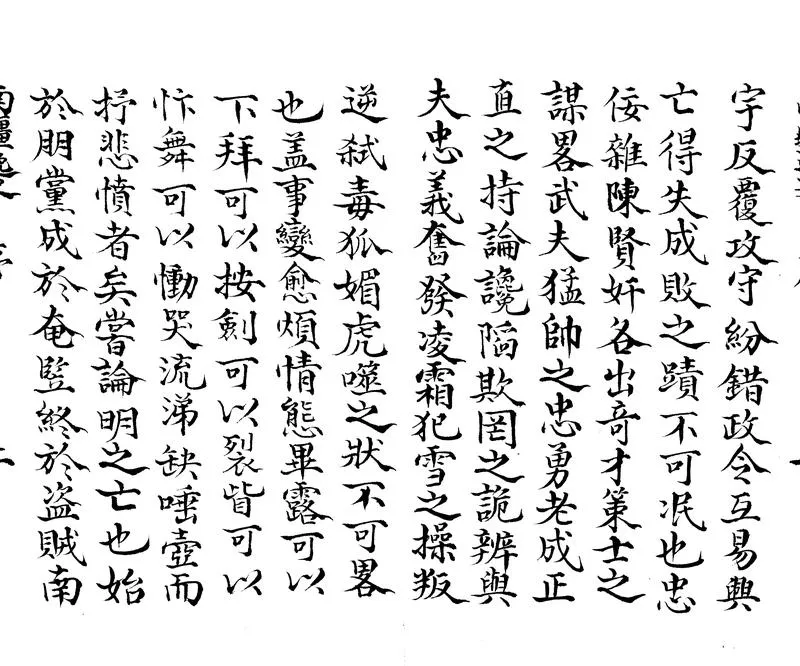 宇反覆攻守紛錯政令互易興
亡得失成敗之蹟不可泯也忠
佞雜陳賢奸各出奇才策士之
謀畧武夫猛帥之忠勇老成正
直之持論讒陷欺罔之詭辨與
夫忠義奮發凌霜犯雪之操叛
逆弑毒狐媚虎噬之狀不可畧
也盖事變愈煩情態畢露可以
下拜可以按劍可以裂眥可以
忭舞可以慟哭流涕缺唾壺而
抒悲憤者矣嘗論明之亡也始
於朋黨成於奄豎終於盗賊南
南疆逸史 序 二